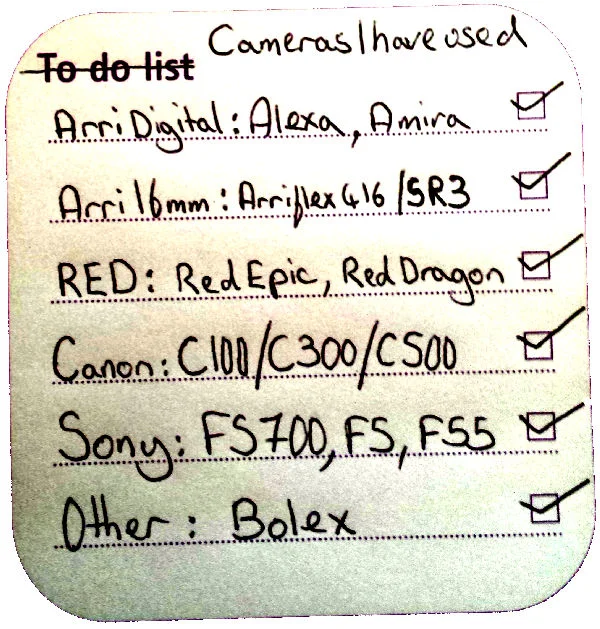 Cameras I have used
To do list
Arri Digital: Alexa, Amira
Arri 16mm: Arriflex 416/SR3
RED: Red Epic, Red Dragon
Canon: C100/C300/C500
Sony: FS700, F5, F55
Other: Bolex